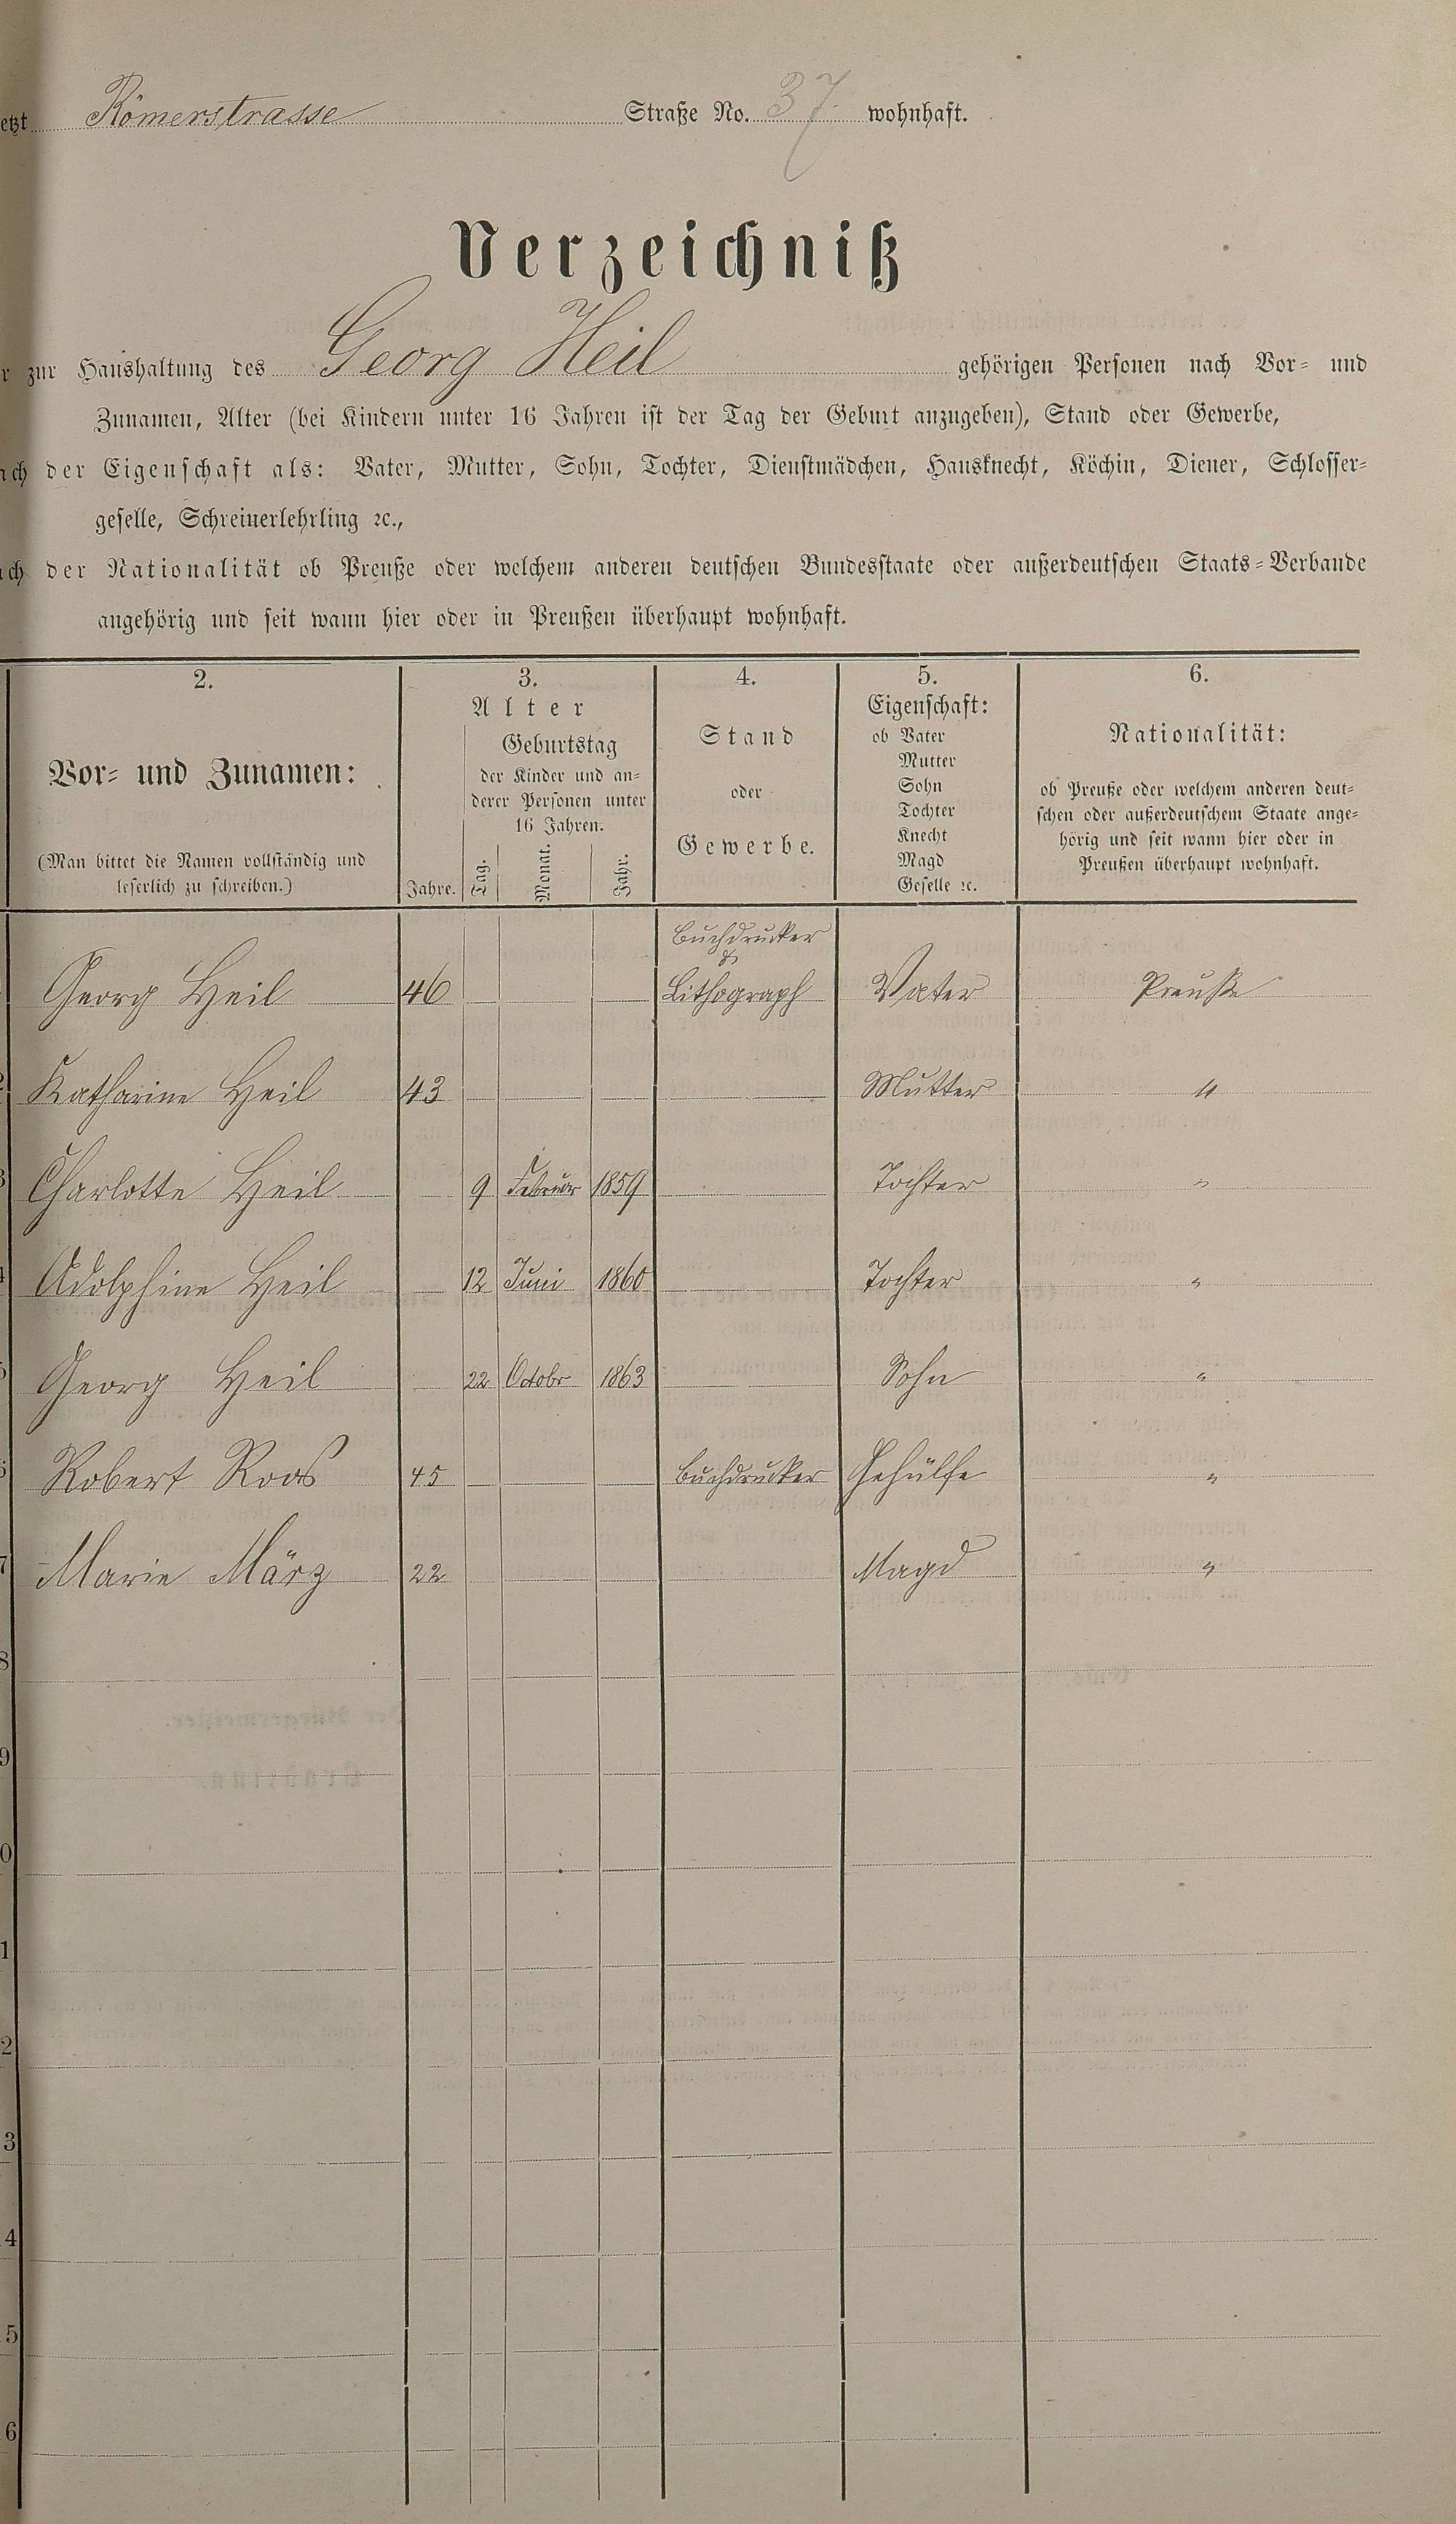 etzt Römerstrasse Straße No. 37 wohnhaft.
Verzeichniß
r zur Haushaltung des Georg Heil gehörigen Personen nach Vor- und
Zunamen, Alter (bei Kindern unter 16 Jahren ist der Tag der Geburt anzugeben), Stand oder Gewerbe,
ach der Eigenschaft als: Vater, Mutter, Sohn, Tochter, Dienstmädchen, Hausknecht, Köchin, Diener, Schlosser-
geselle, Schreinerlehrling ꝛc.,
ach der Nationalität ob Preuße oder welchem anderen deutschen Bundesstaate oder außerdeutschen Staats-Verbande
angehörig und seit wann hier oder in Preußen überhaupt wohnhaft.
2.
Vor- und Zunamen:
(Man bittet die Namen vollständig und
leserlich zu schreiben.)
3.
Alter
Jahre.
Geburtstag
der Kinder und an-
derer Personen unter
16 Jahren.
Tag.
Monat.
Jahr.
4.
Stand
oder
Gewerbe.
5.
Eigenschaft:
ob Vater
Mutter
Sohn
Tochter
Knecht
Magd
Geselle ꝛc.
6.
Nationalität:
ob Preuße oder welchem anderen deut-
schen oder außerdeutschem Staate ange-
hörig und seit wann hier oder in
Preußen überhaupt wohnhaft.
Buchdrucker
&
Georg Heil 46 Lithograph Vater Preuße
2 Katharine Heil 43 Mutter "
3 Charlotte Heil 9 Februar 1859 Tochter "
4 Adolphine Heil 12 Juni 1860 Tochter "
5 Georg Heil 22 Octobr 1863 Sohn "
6 Robert Roos 45 Buchdrucker Gehülfe "
7 Marie März 22 Magd "
8
9
0
1
2
3
4
5
6